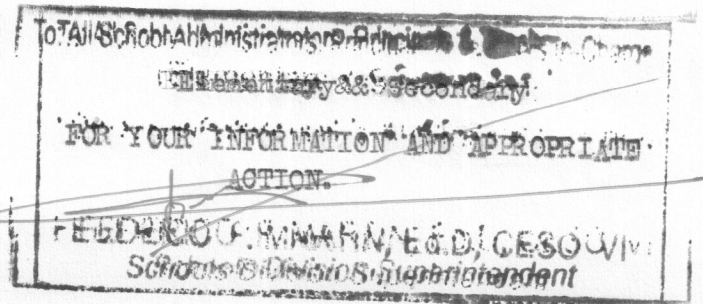 To: All School Administrators, Principals & in-Charge
Elementary & Secondary
FOR YOUR INFORMATION AND APPROPRIATE
ACTION.
Ed.D, CESO VI
Schools Division Superintendent